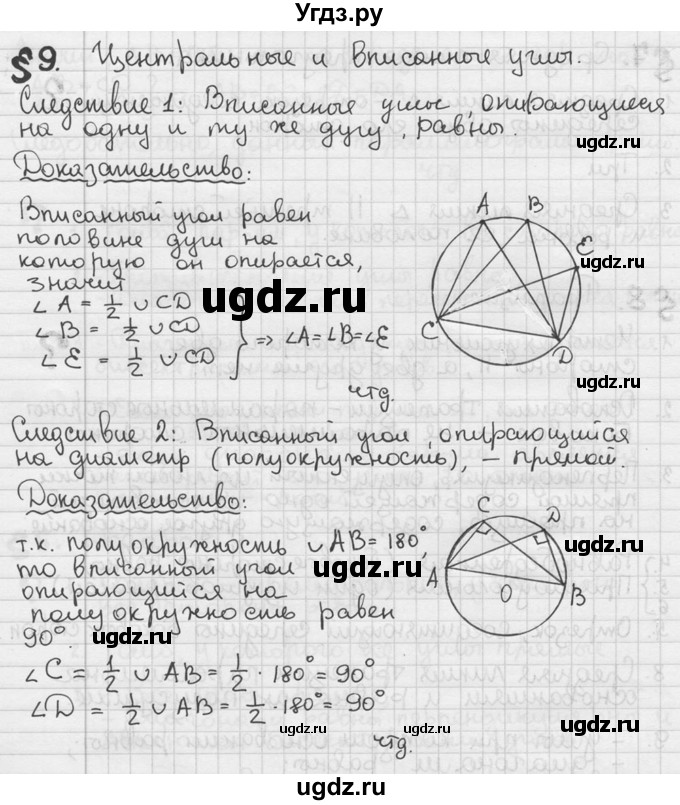 Угдз.ру
§9. Центральные и вписанные углы.
Следствие 1: Вписанные углы, опирающиеся
на одну и ту же дугу, равны.
Доказательство:
Вписанный угол равен
половине дуги на
которую он опирается,
значит
∠A = 1/2 ∪ CD
∠B = 1/2 ∪ CD
∠E = 1/2 ∪ CD
=> ∠A=∠B=∠E
чтд.
A B
E
C
D
Следствие 2: Вписанный угол, опирающийся
на диаметр (полуокружность), – прямой.
Доказательство:
т.к. полуокружность ∪AB=180°,
то вписанный угол
опирающийся на
полуокружность равен
90°.
∠C = 1/2 ∪ AB = 1/2 · 180° = 90°
∠D = 1/2 ∪ AB = 1/2 · 180° = 90°
чтд.
C D
A
O B
ugdz.ru
ugdz.ru
ugdz.ru
ugdz.ru
ugdz.ru
ugdz.ru
ugdz.ru
ugdz.ru
ugdz.ru
ugdz.ru
ugdz.ru
ugdz.ru
ugdz.ru